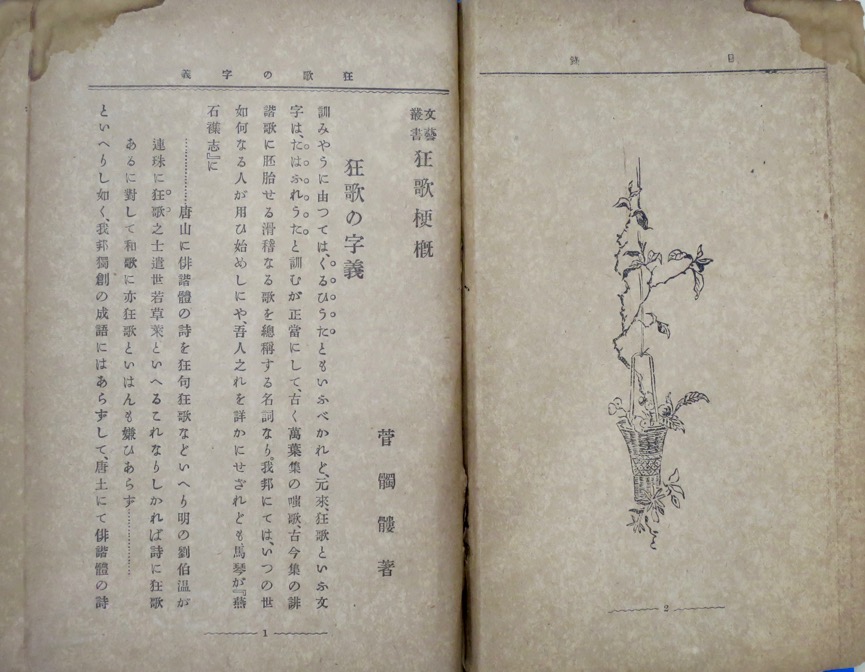 目錄
2
狂歌の字義
文藝叢書 狂歌梗概
菅髑髏著
狂歌の字義
訓みやうに由つては、くるひうたともいふべかれど、元來、狂歌といふ文
字は、たはふれうたと訓むが正當にして、古く萬葉集の嗤歌、古今集の誹
諧歌に胚胎せる滑稽なる歌を總稱する名詞なり。我邦にては、いつの世
如何なる人が用ひ始めしにや、吾人之れを詳かにせざれども、馬琴が『燕
石襍志』に
…………唐山に俳諧體の詩を狂句狂歌などいへり明の劉伯溫が
連珠に狂歌之士遺世若草萊といへるこれなりしかれば詩に狂歌
あるに對して和歌に亦狂歌といはんも嫌ひあらず…………
といへりし如く、我邦獨創の成語にはあらずして、唐土にて俳諧體の詩
1